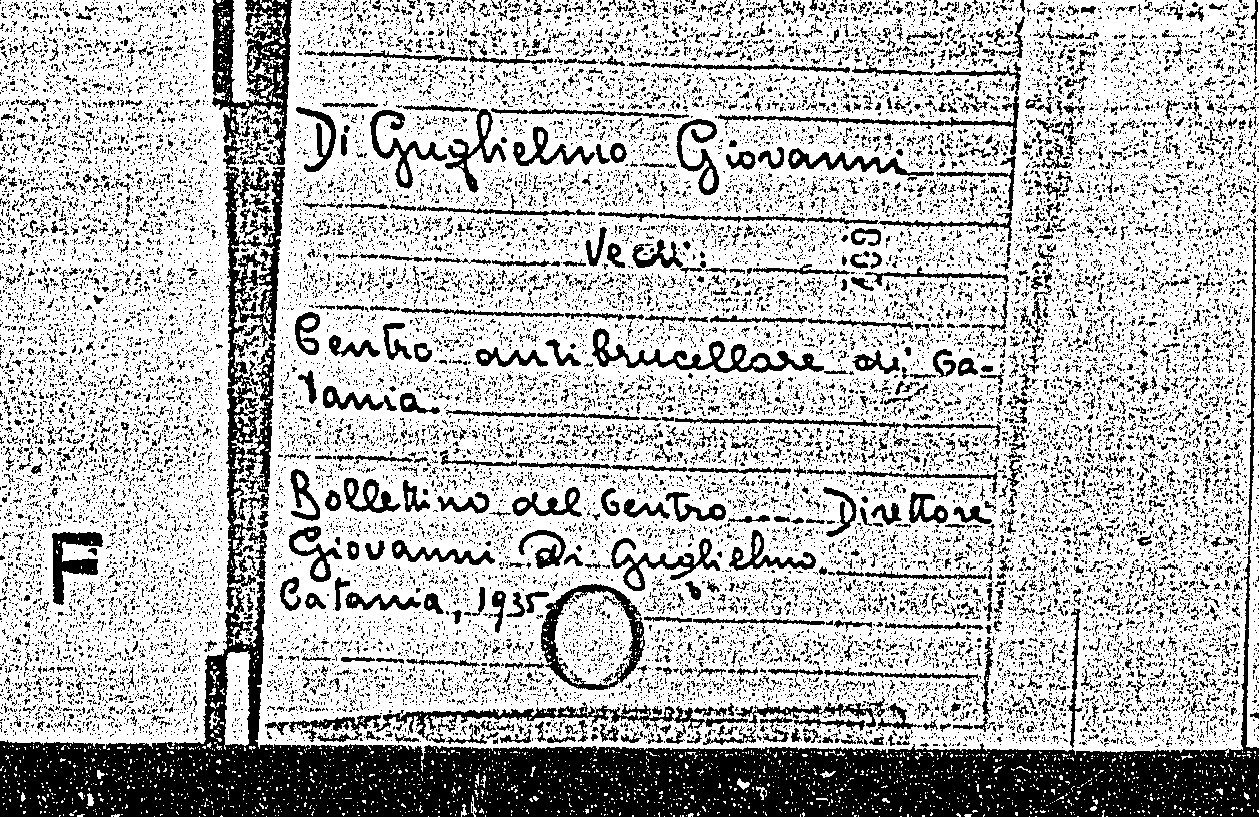 Di Guglielmo Giovanni
Vedi:
Centro antibrucellare di Ca-
tania.
Bollettino del Centro ...... Direttore
Giovanni Di Guglielmo.
Catania, 1935.
F